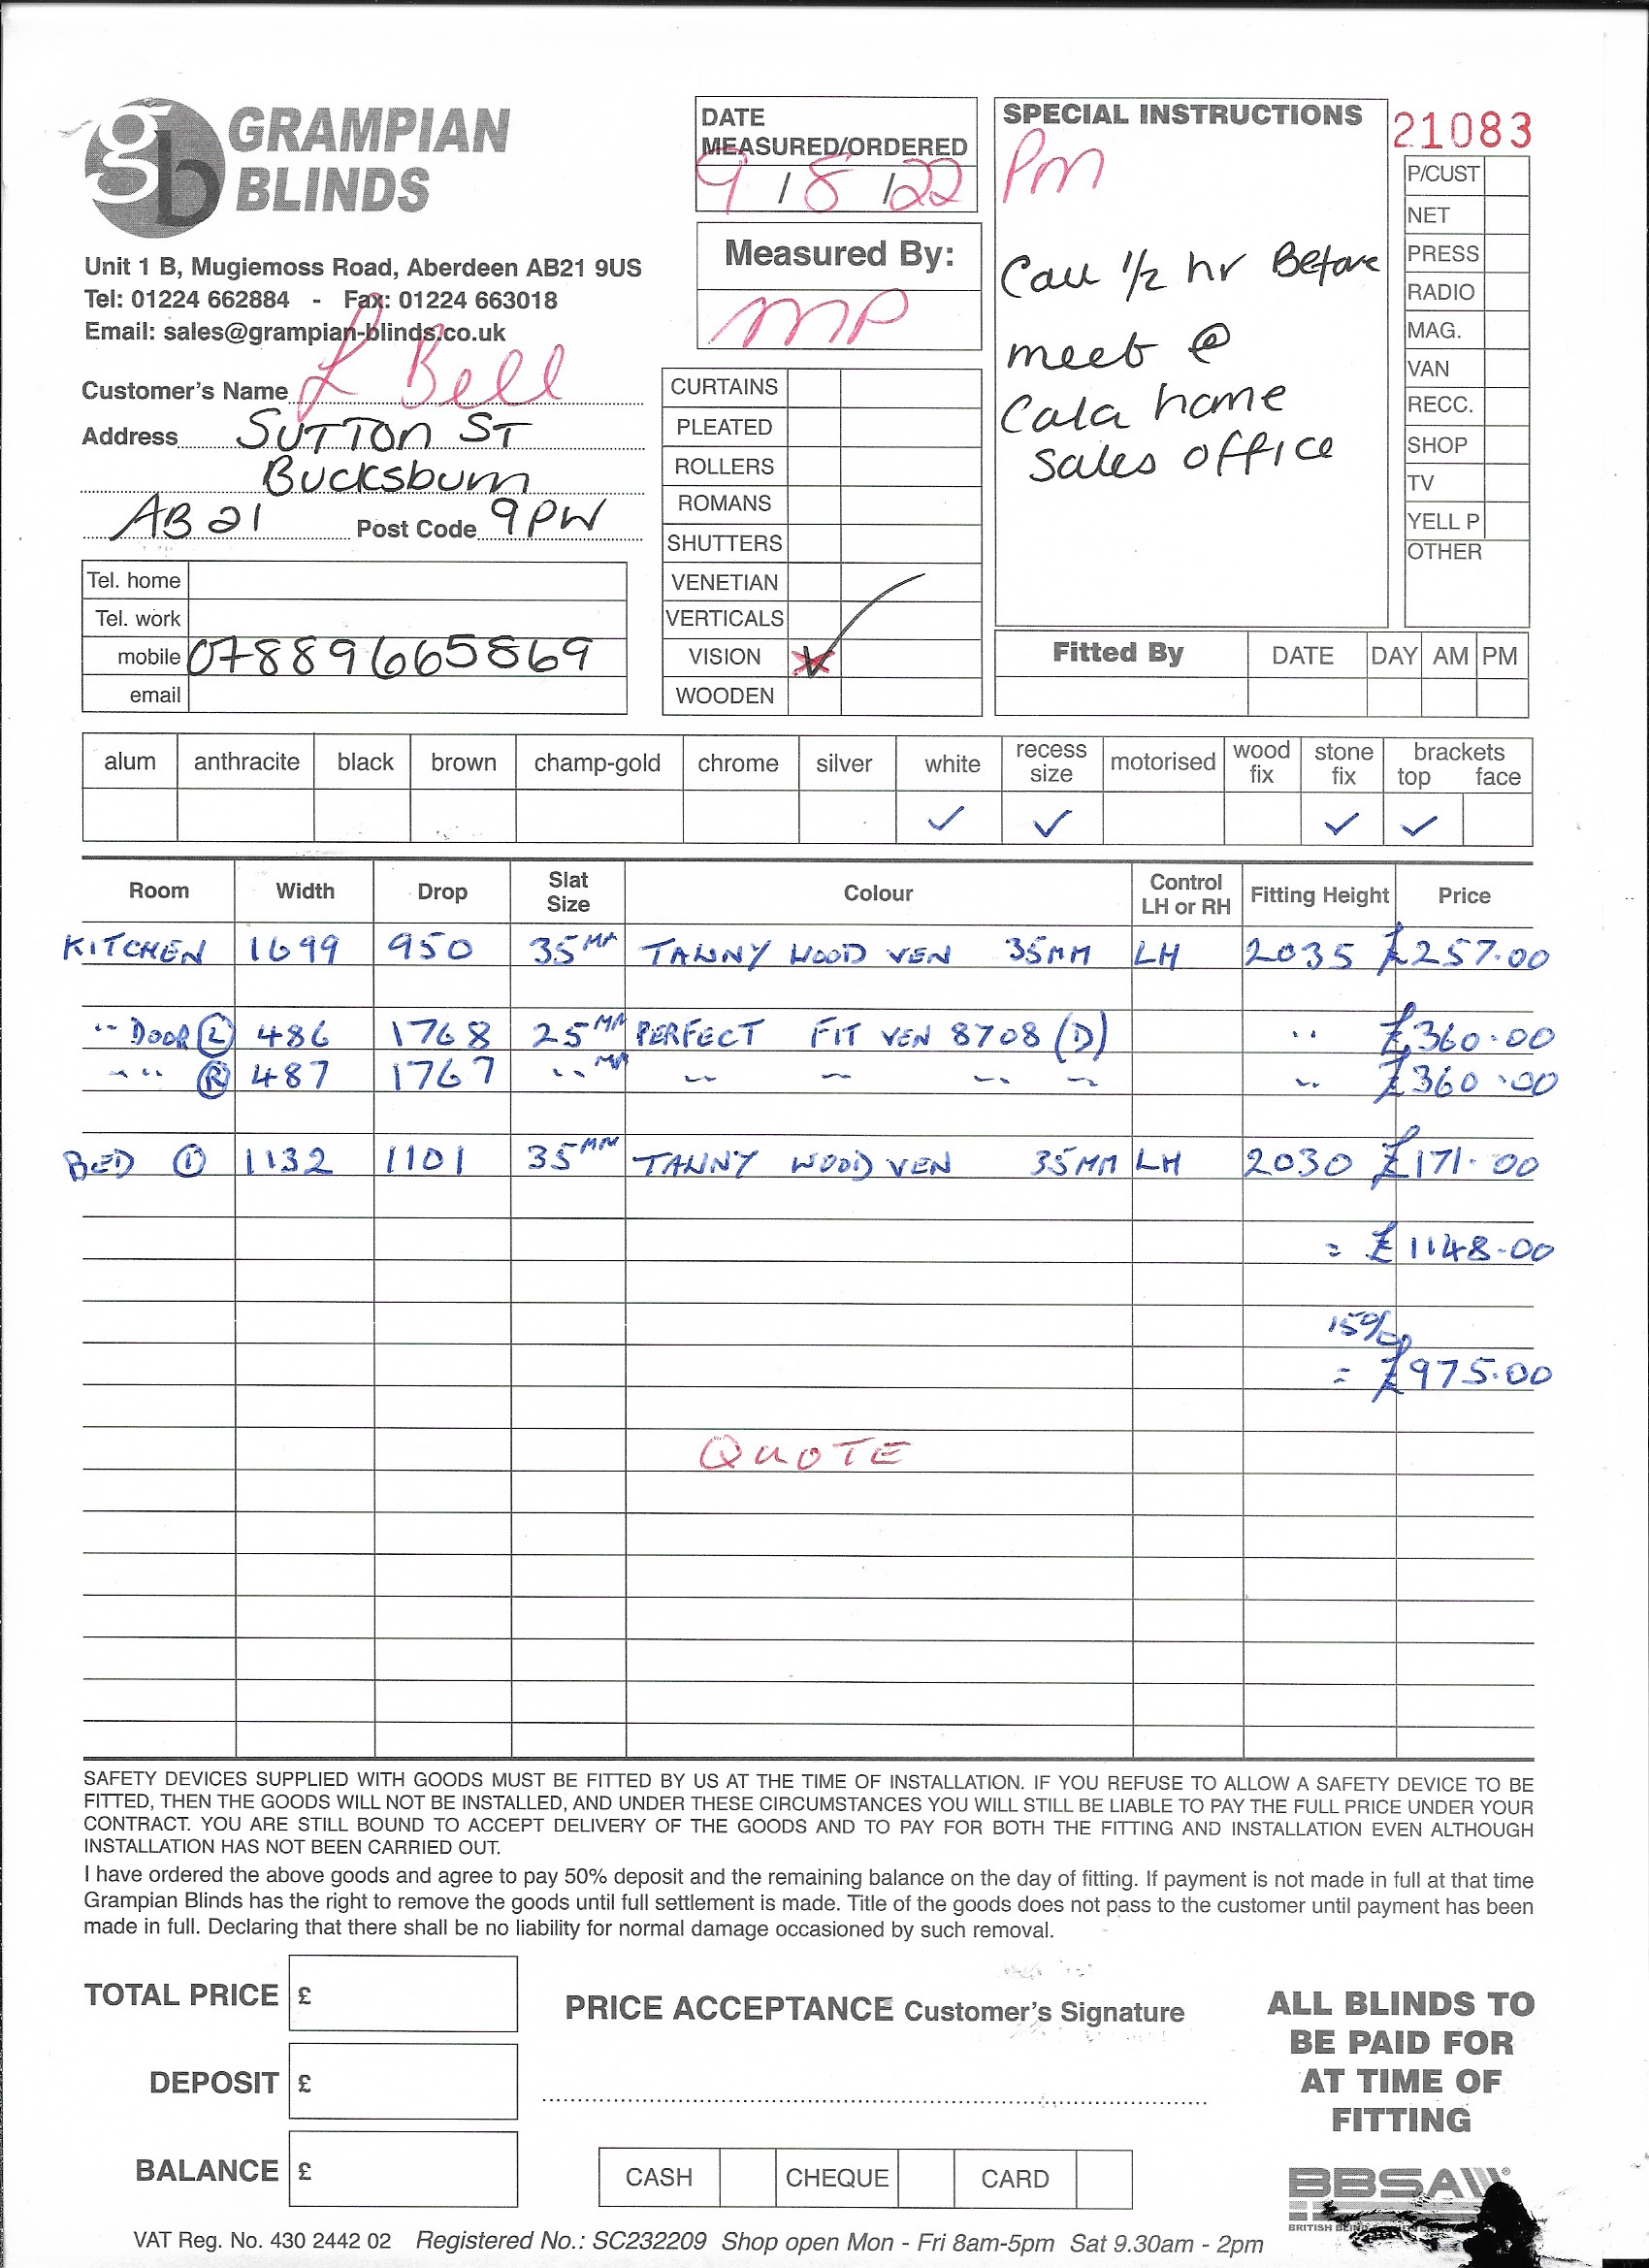 gb GRAMPIAN
BLINDS
Unit 1 B, Mugiemoss Road, Aberdeen AB21 9US
Tel: 01224 662884 - Fax: 01224 663018
Email: sales@grampian-blinds.co.uk
Customer's Name L Bell
Address SUTTON ST
Bucksburn
AB21 Post Code 9PW
Tel. home
Tel. work
mobile 07889665869
email
DATE
MEASURED/ORDERED
9 / 8 / 22
Measured By:
MP
CURTAINS
PLEATED
ROLLERS
ROMANS
SHUTTERS
VENETIAN
VERTICALS
VISION
WOODEN
SPECIAL INSTRUCTIONS
Pm
Call 1/2 hr Before
meet @
Cala home
Sales office
21083
P/CUST
NET
PRESS
RADIO
MAG.
VAN
RECC.
SHOP
TV
YELL P
OTHER
Fitted By DATE DAY AM PM
alum anthracite black brown champ-gold chrome silver white recess size motorised wood fix stone fix brackets top face
✓ ✓ ✓ ✓
Room Width Drop Slat Size Colour Control LH or RH Fitting Height Price
KITCHEN 1699 950 35MM TAWNY WOOD VEN 35MM LH 2035 £257.00
" DOOR (L) 486 1768 25MM PERFECT FIT VEN 8708 (D) " £360.00
" " (R) 487 1767 " MM " " " " " £360.00
BED (1) 1132 1101 35MM TAWNY WOOD VEN 35MM LH 2030 £171.00
= £1148.00
15%
= £975.00
QUOTE
SAFETY DEVICES SUPPLIED WITH GOODS MUST BE FITTED BY US AT THE TIME OF INSTALLATION. IF YOU REFUSE TO ALLOW A SAFETY DEVICE TO BE
FITTED, THEN THE GOODS WILL NOT BE INSTALLED, AND UNDER THESE CIRCUMSTANCES YOU WILL STILL BE LIABLE TO PAY THE FULL PRICE UNDER YOUR
CONTRACT. YOU ARE STILL BOUND TO ACCEPT DELIVERY OF THE GOODS AND TO PAY FOR BOTH THE FITTING AND INSTALLATION EVEN ALTHOUGH
INSTALLATION HAS NOT BEEN CARRIED OUT.
I have ordered the above goods and agree to pay 50% deposit and the remaining balance on the day of fitting. If payment is not made in full at that time
Grampian Blinds has the right to remove the goods until full settlement is made. Title of the goods does not pass to the customer until payment has been
made in full. Declaring that there shall be no liability for normal damage occasioned by such removal.
TOTAL PRICE £
DEPOSIT £
BALANCE £
PRICE ACCEPTANCE Customer's Signature
CASH CHEQUE CARD
ALL BLINDS TO
BE PAID FOR
AT TIME OF
FITTING
BBSA
BRITISH
VAT Reg. No. 430 2442 02 Registered No.: SC232209 Shop open Mon - Fri 8am-5pm Sat 9.30am - 2pm